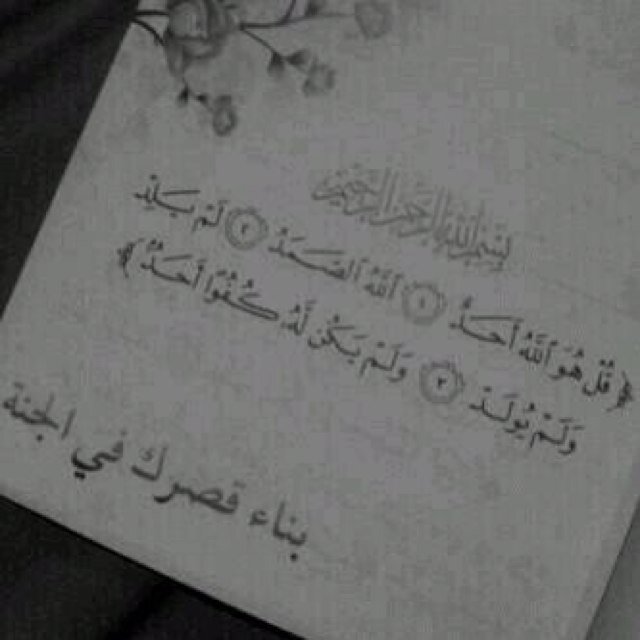 بسم الله الرحمن الرحيم
﴿قُلْ هُوَ اللَّهُ أَحَدٌ ۝١ اللَّهُ الصَّمَدُ ۝٢ لَمْ يَلِدْ
وَلَمْ يُولَدْ ۝٣ وَلَمْ يَكُن لَّهُ كُفُوًا أَحَدٌ﴾
بناء قصرك في الجنة